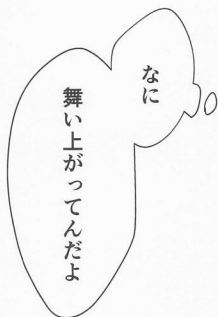 なに
舞い上がってんだよ